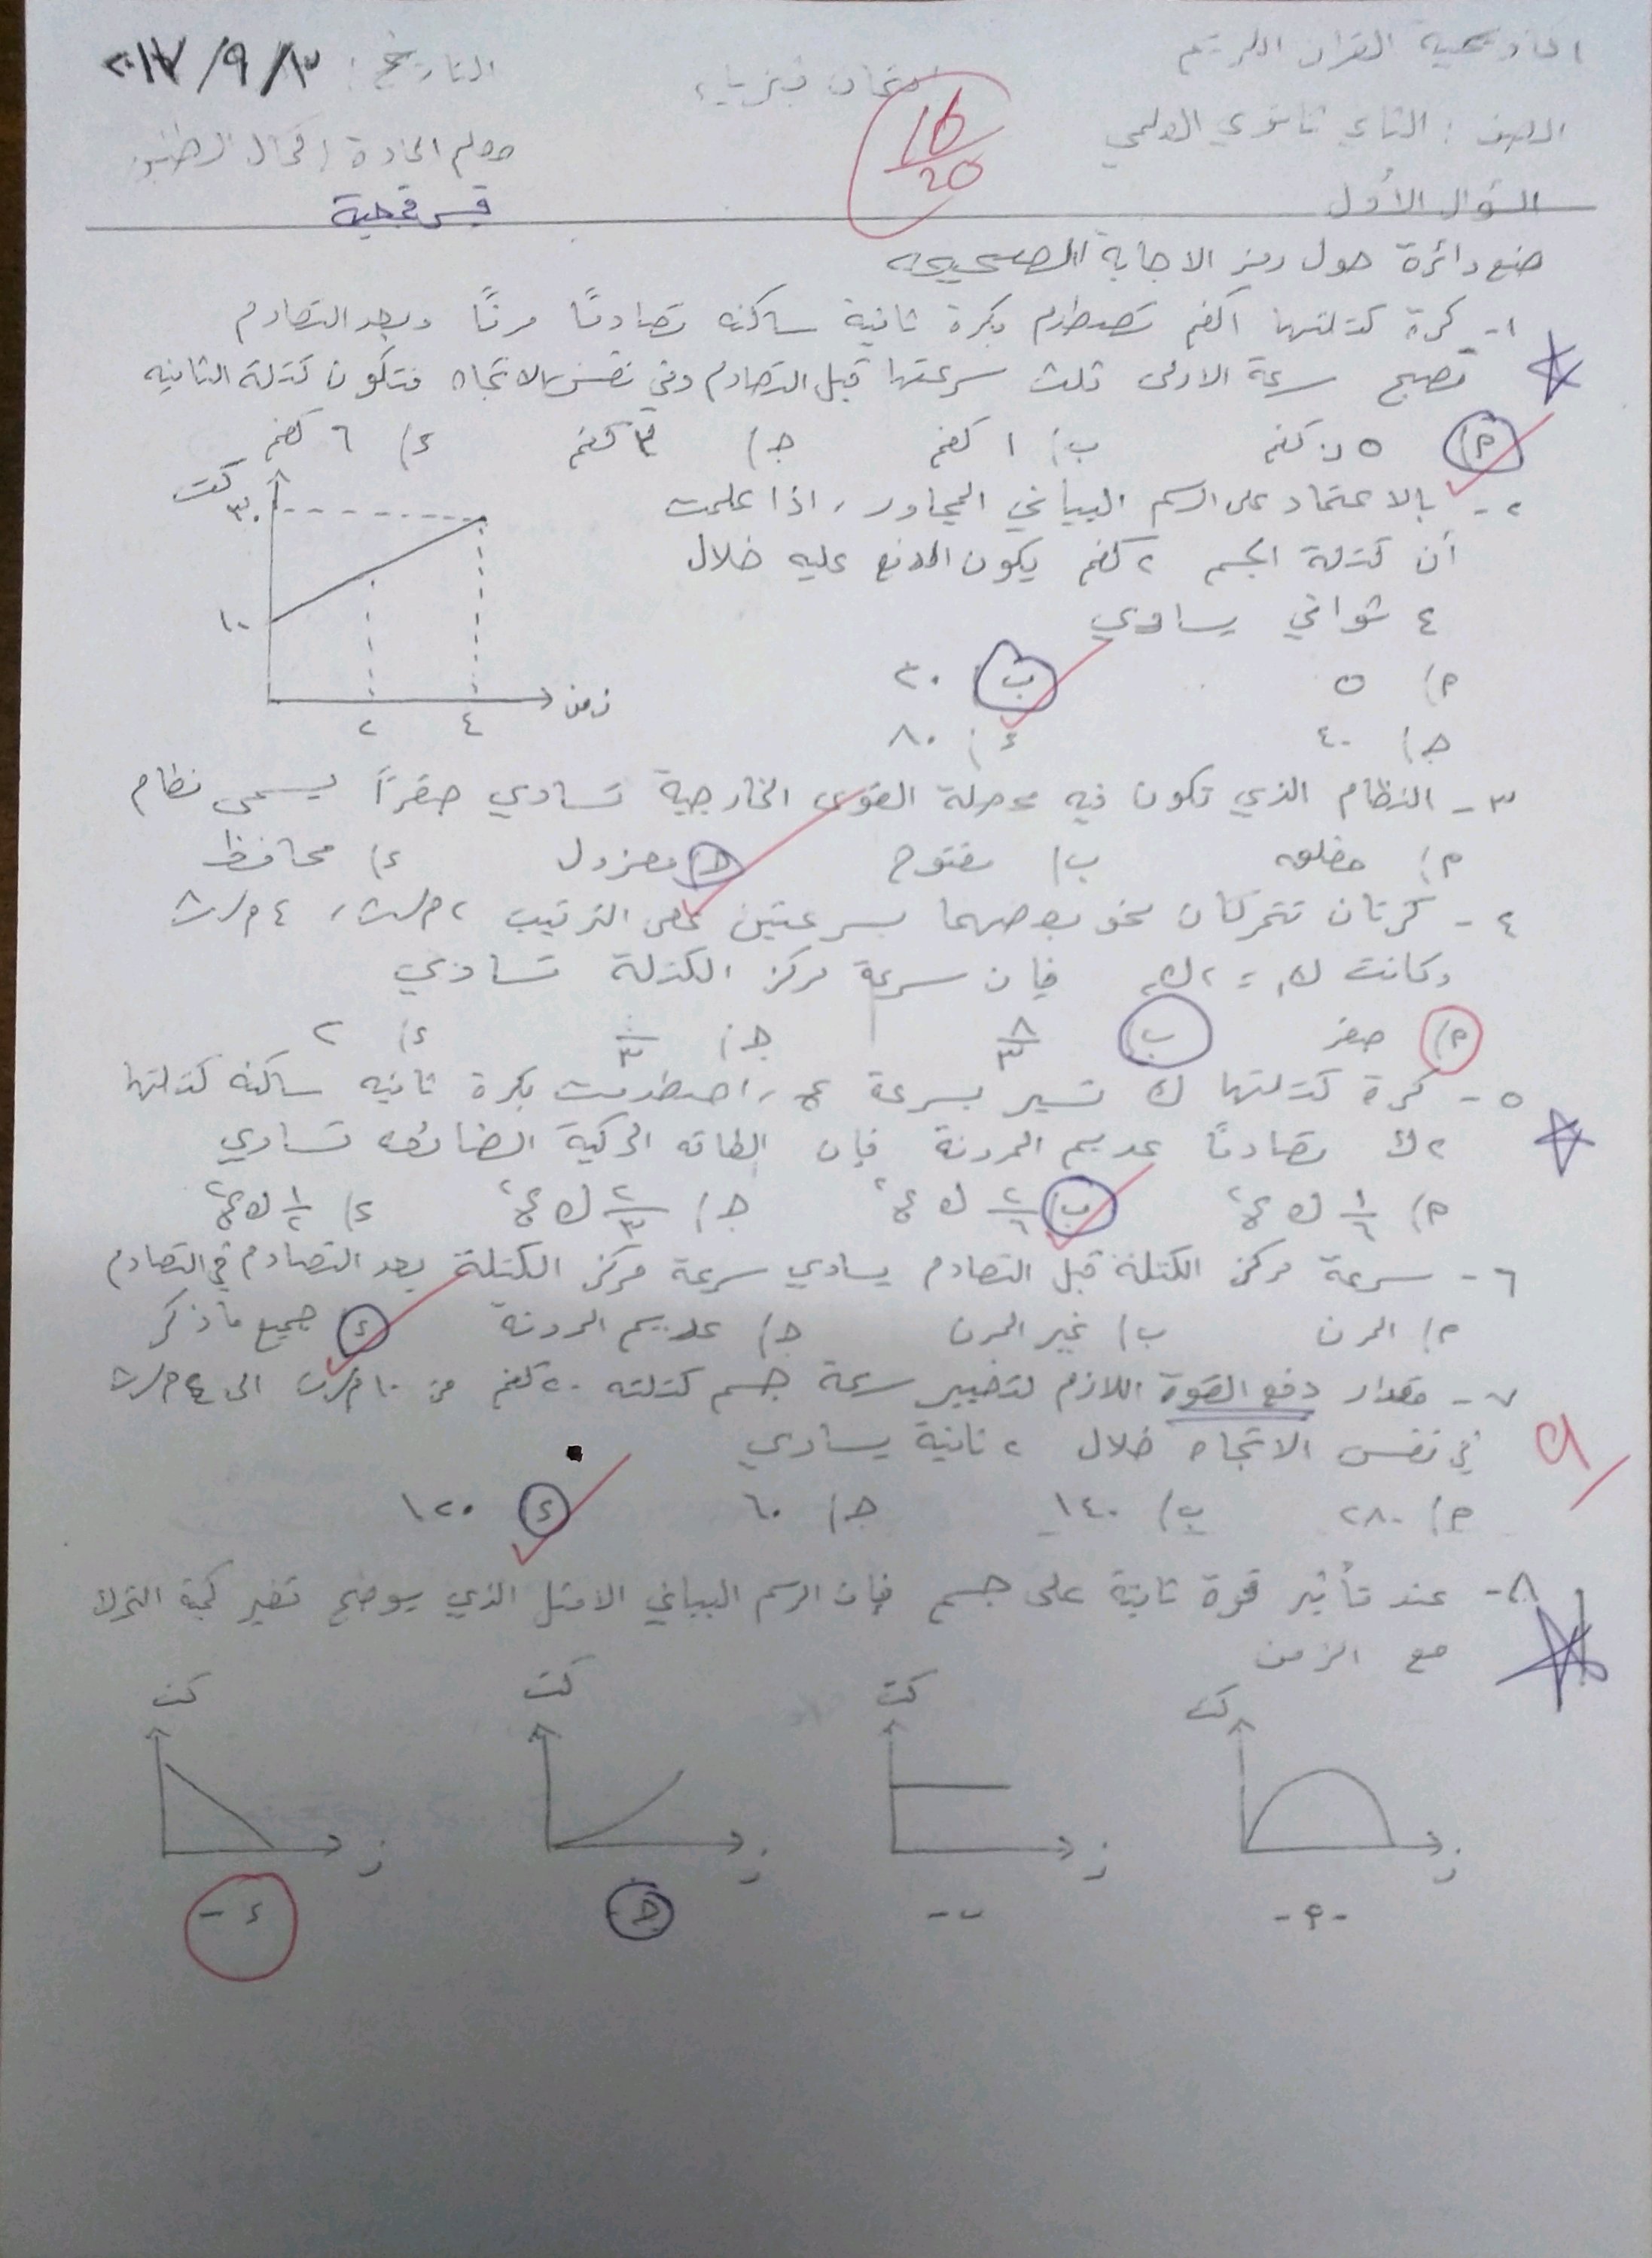 اكاديمية القران الكريم
امتحان فيزياء
التاريخ: ٢٠١٧/٩/١٣
الصف: الثاني ثانوي العلمي
16/20
معلم المادة
السؤال الأول
ضع دائرة حول رمز الاجابة الصحيحه
١- كرة كتلتها ١كغم تصطدم بكرة ثانية ساكنه تصادمًا مرنًا وبعد التصادم
تصبح سرعة الاولى ثلث سرعتها قبل التصادم وفي نفس الاتجاه فتكون كتلة الثانيه
أ) ٥ر٠ كغم ب) ١ كغم جـ) ٣ كغم د) ٦ كغم
٢- بالاعتماد على الرسم البياني المجاور، اذا علمت
أن كتلة الجسم ٢ كغم يكون الدفع عليه خلال
٤ ثواني يساوي
أ) ٥ ب) ٢٠
جـ) ٤٠ د) ٨٠
كت
٣٠
١٠
٢ ٤ زمن
٣- النظام الذي تكون فيه محصلة القوى الخارجية تساوي صفرًا يسمى نظام
أ) مغلق ب) مفتوح جـ) معزول د) محافظ
٤- كرتان تتحركان نحو بعضهما بسرعتين على الترتيب ٢ م/ث، ٤ م/ث
وكانت ك١ = ٢ك٢ فإن سرعة مركز الكتلة تساوي
أ) صفر ب) ٨/٣ جـ) ١٠/٣ د) ٢
٥- كرة كتلتها ك تسير بسرعة ع، اصطدمت بكرة ثانيه ساكنه كتلتها
٢ك تصادمًا عديم المرونة فإن الطاقه الحركية الضائعه تساوي
أ) ١/٦ ك ع٢ ب) ٢/٦ ك ع٢ جـ) ٢/٣ ك ع٢ د) ١/٢ ك ع٢
٦- سرعة مركز الكتلة قبل التصادم يساوي سرعة مركز الكتلة بعد التصادم في التصادم
أ) المرن ب) غير المرن جـ) عديم المرونة د) جميع ما ذكر
٧- مقدار دفع القوة اللازم لتغيير سرعة جسم كتلته ٢٠ كغم من ١٠ م/ث الى ٤ م/ث
في نفس الاتجاه خلال ٢ ثانية يساوي
أ) ٢٨٠ ب) ١٤٠ جـ) ٦٠ د) ١٢٠
٨- عند تأثير قوة ثابتة على جسم فإن الرسم البياني الامثل الذي يوضح تغير كمية التحرك
مع الزمن
كت كت كت كت
ز ز ز ز
-أ- -ب- جـ- د-